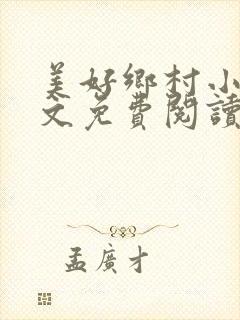 美好鄉村小
文免費閱讀
孟廣才